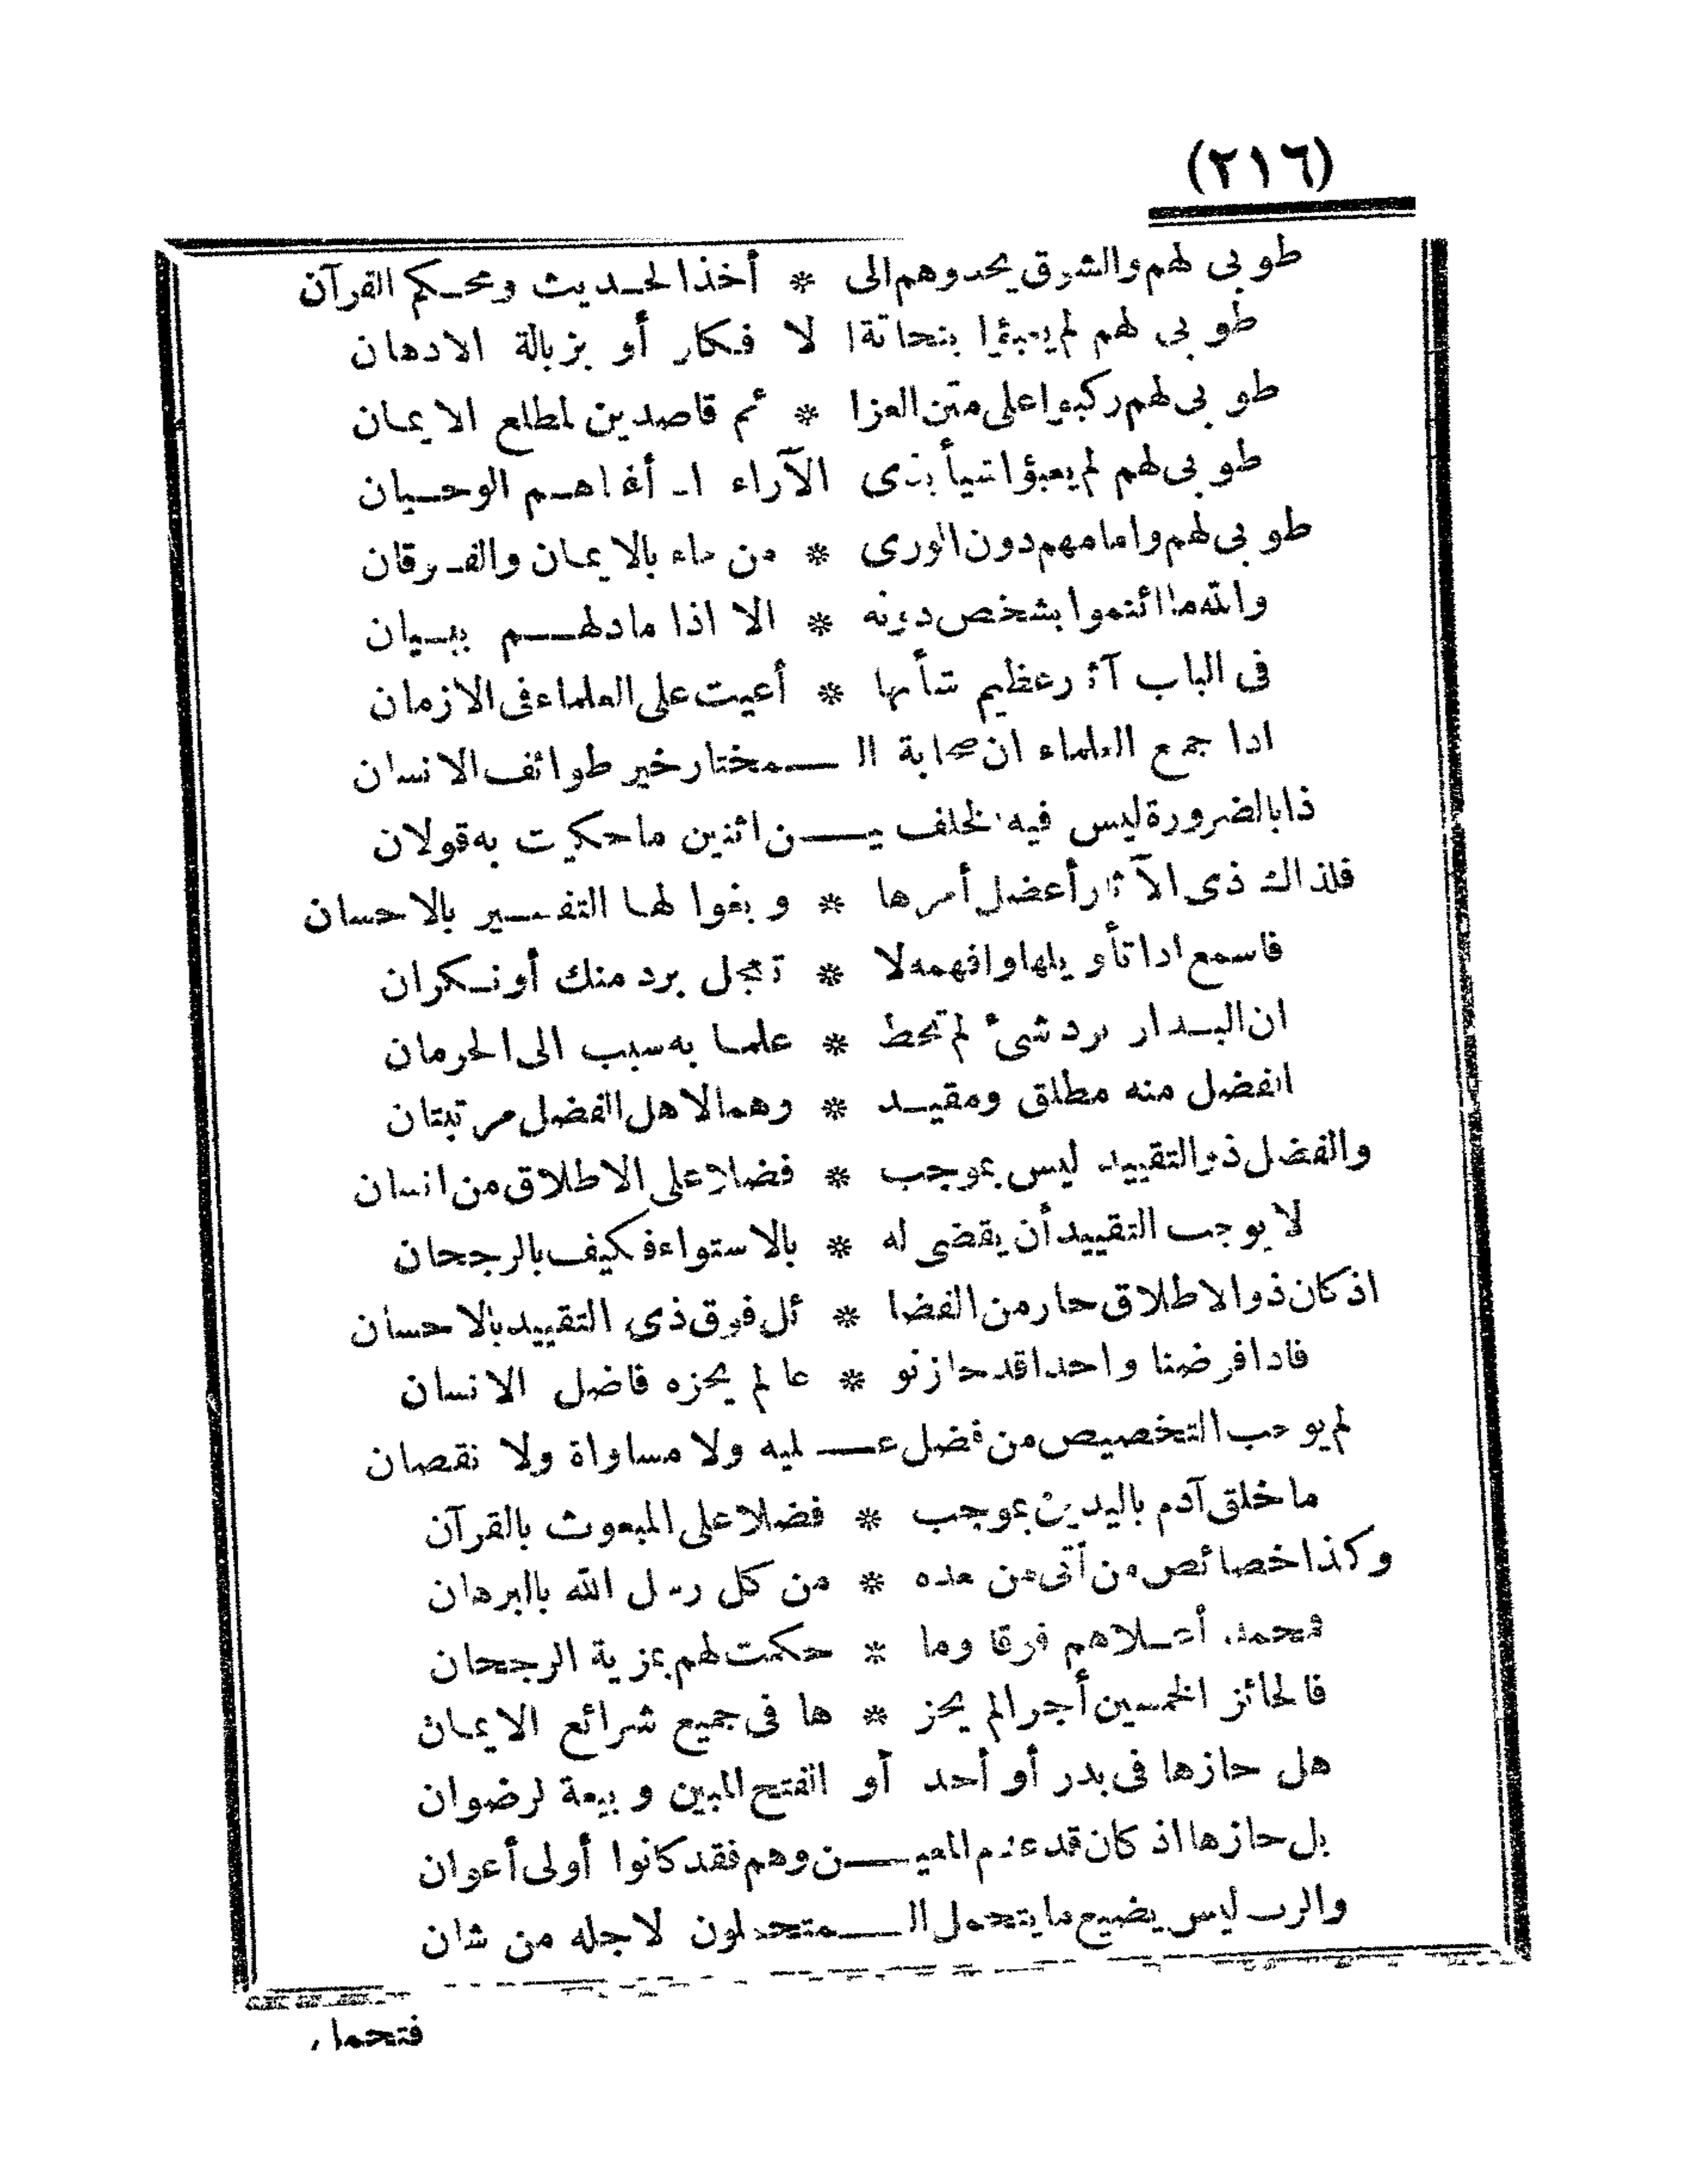 (٢١٦)
طوبى لهم والشوق يحدوهم الى * أخذ الحديث ومحكم القرآن
طوبى لهم لم يعبئوا بنحاتة ا لا فكار أو بزبالة الاذهان
طوبى لهم ركبوا على متن العزا * ئم قاصدين لمطلع الايمان
طوبى لهم لم يعبؤا شيأ بذى الآراء اذ أغناهم الوحيان
طوبى لهم وامامهم دون الورى * من جاء بالايمان والفرقان
والله ما ائتموا بشخص دونه * الا اذا ما دلهم ببيان
فى الباب آثار عظيم شأنها * أعيت على العلماء فى الازمان
اذا جمع العلماء ان صحابة الـ ـمختار خير طوائف الانسان
ذا بالضرورة ليس فيه الخلف بيـ ـن اثنين ما حكيت به قولان
فلذاك ذى الآثار أعضل أمرها * وبغوا لها التفسير بالاحسان
فاسمع اذا تأويلها وافهمه لا * تعجل برد منك أو نكران
ان البدار برد شئ لم تحط * علما به سبب الى الحرمان
الفضل منه مطلق ومقيد * وهما لاهل الفضل مرتبتان
والفضل ذو التقييد ليس بموجب * فضلا على الاطلاق من انسان
لا يوجب التقييد أن يقضى له * بالاستواء فكيف بالرجحان
اذ كان ذو الاطلاق حاز من الفضا * ئل فوق ذى التقييد بالاحسان
فاذا فرضنا واحدا قد حاز نو * عا لم يحزه فاضل الانسان
لم يوجب التخصيص من فضل عـ ـليه ولا مساواة ولا نقصان
ما خلق آدم باليدين بموجب * فضلا على المبعوث بالقرآن
وكذا خصائص من أتى من بعده * من كل رسل الله بالبرهان
فمحمد أعلاهم فوقا وما * حكمت لهم بمزية الرجحان
فالحائز الخمسين أجرا لم يحز * ها فى جميع شرائع الايمان
هل حازها فى بدر أو أحد أو الفتح المبين وبيعة لرضوان
بل حازها اذ كان قد عدم المعيـ ـن وهم فقد كانوا أولى أعوان
والرب ليس يضيع ما يتحمل الـ ـمتحملون لاجله من شان
فتحمل